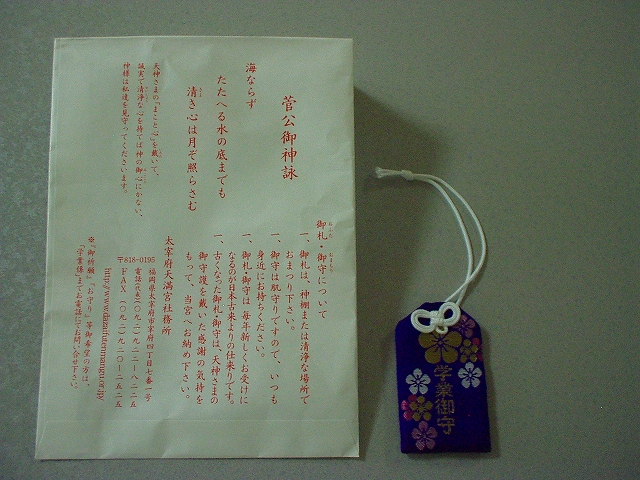 菅公御神詠
海ならず
たたへる水の底までも
清き心は月ぞ照らさむ
天神さまの「まこと心」を戴いて、
誠実で清浄な心を持てば神の御心にかない、
神様は私達を見守ってくださいます。
御札・御守について
一、御札は、神棚または清浄な場所で
おまつり下さい。
一、御守は肌守りですので、いつも
身近にお持ちください。
一、御札・御守は毎年新しくお受けに
なるのが日本古来よりの仕来りです。
一、古くなった御札・御守は、天神さまの
御守護を戴いた感謝の気持を
もって、当宮へお納め下さい。
太宰府天満宮社務所
〒818-0195
福岡県太宰府市宰府四丁目七番一号
電話(代表)(〇九二)九二二―八二二五
FAX(〇九二)九二〇―二五二五
http://www.dazaifutenmangu.or.jp/
※「御祈願」「お守り」等御希望の方は、
「学業係」までお電話にてお問い合せ下さい。
学業御守